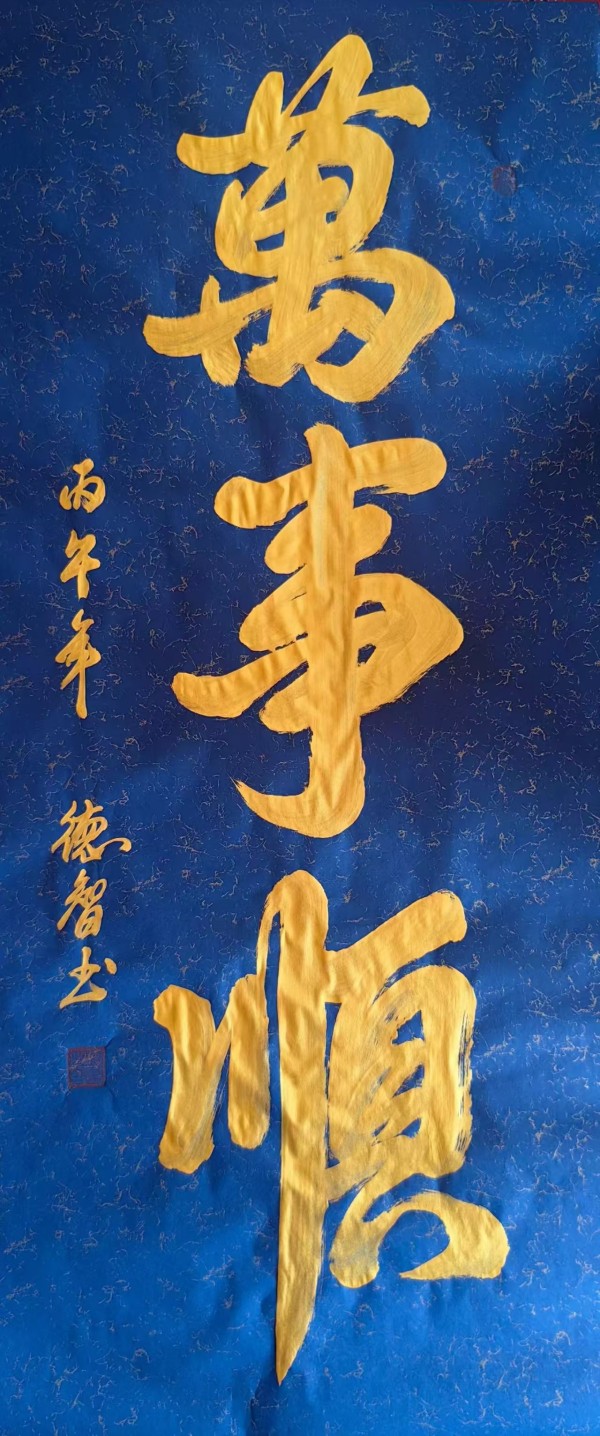 萬事順
丙午年 德智书